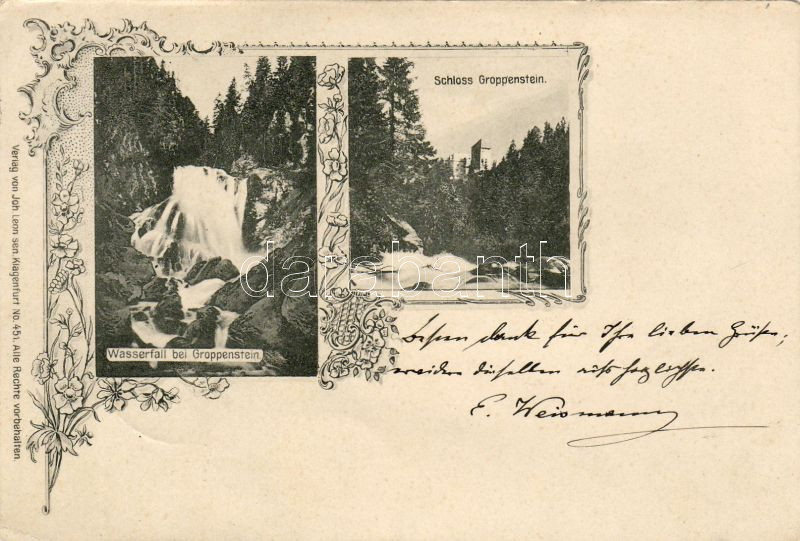 Schloss Groppenstein.
Wasserfall bei Groppenstein.
Verlag von Joh Leon sen. Klagenfurt No. 451. Alle Rechte vorbehalten.
darabanth
dank für Ihre lieben Grüße,
dieselben aufs herzlichste.
E. Weismann